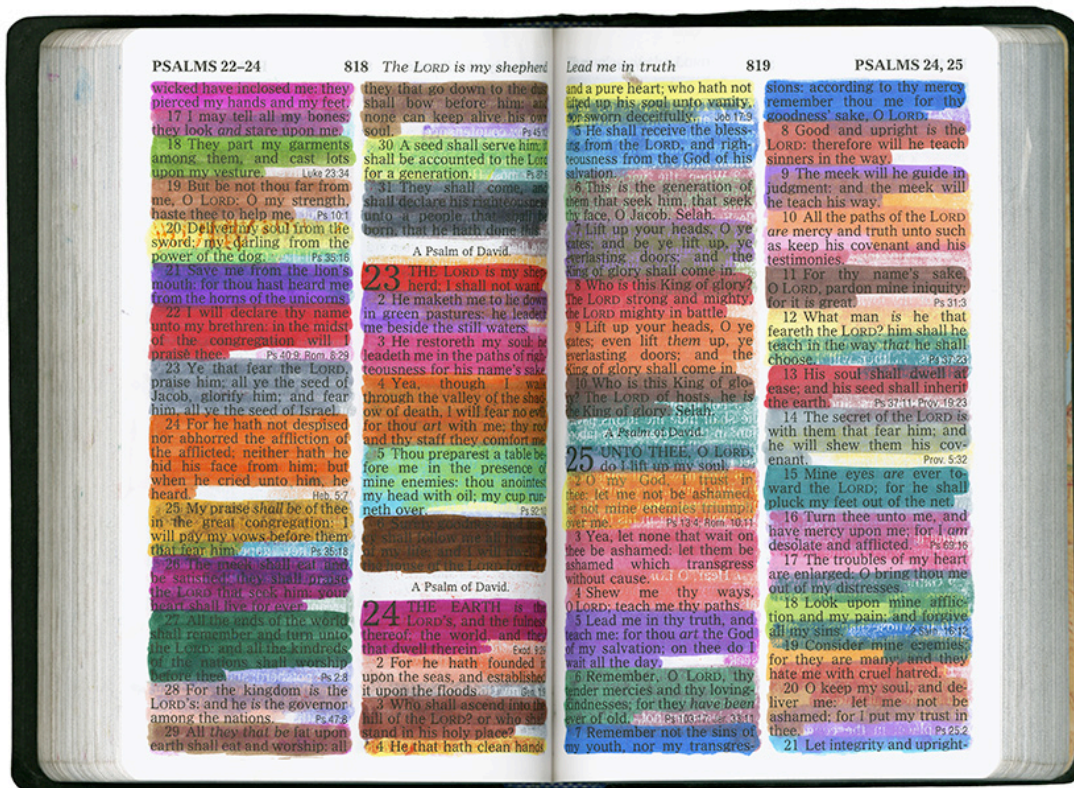 PSALMS 22–24
818
The LORD is my shepherd
wicked have inclosed me: they
pierced my hands and my feet.
17 I may tell all my bones:
they look and stare upon me.
18 They part my garments
among them, and cast lots
upon my vesture.
Luke 23:34
19 But be not thou far from
me, O LORD: O my strength,
haste thee to help me.
Ps 10:1
20 Deliver my soul from the
sword; my darling from the
power of the dog.
Ps 35:16
21 Save me from the lion's
mouth: for thou hast heard me
from the horns of the unicorns
22 I will declare thy name
unto my brethren: in the midst
of the congregation will I
praise thee.
Ps 40:9; Rom. 8:29
23 Ye that fear the LORD,
praise him; all ye the seed of
Jacob, glorify him; and fear
him, all ye the seed of Israel.
24 For he hath not despised
nor abhorred the affliction of
the afflicted; neither hath he
hid his face from him; but
when he cried unto him, he
heard.
Heb. 5:7
25 My praise shall be of thee
in the great congregation: I
will pay my vows before them
that fear him.
Ps 35:18
26 The meek shall eat and
be satisfied: they shall praise
the LORD that seek him: your
heart shall live for ever.
27 All the ends of the world
shall remember and turn unto
the LORD: and all the kindreds
of the nations shall worship
before thee.
Ps 2:8
28 For the kingdom is the
LORD's: and he is the governor
among the nations.
Ps 47:8
29 All they that be fat upon
earth shall eat and worship: all
they that go down to the
shall bow before him: and
none can keep alive his own
soul.
Ps 45:
30 A seed shall serve him; it
shall be accounted to the Lord
for a generation.
Ps 87:6
31 They shall come, and
shall declare his righteousness
unto a people that shall be
born, that he hath done this.
A Psalm of David.
23 THE LORD is my shep-
herd; I shall not want.
2 He maketh me to lie down
in green pastures: he leadeth
me beside the still waters.
3 He restoreth my soul: he
leadeth me in the paths of righ-
teousness for his name's sake.
4 Yea, though I walk
through the valley of the shad-
ow of death, I will fear no evil:
for thou art with me; thy rod
and thy staff they comfort me.
5 Thou preparest a table be-
fore me in the presence of
mine enemies: thou anointest
my head with oil; my cup run-
neth over.
Ps 92:10
6 Surely goodness and
shall follow me all
my life: and I will dwell
house of the LORD
A Psalm of David.
24 THE EARTH is the
LORD's, and the fulness
thereof; the world, and they
that dwell therein.
Exod. 9:29
2 For he hath founded it
upon the seas, and established
it upon the floods.
3 Who shall ascend into the
hill of the LORD? or who shall
stand in his holy place?
4 He that hath clean hands
Lead me in truth
819
PSALMS 24, 25
and a pure heart; who hath not
lifted up his soul unto vanity,
nor sworn deceitfully.
Job 17:9
5 He shall receive the bless-
ing from the LORD, and righ-
teousness from the God of his
salvation.
6 This is the generation of
them that seek him, that seek
thy face, O Jacob. Selah.
7 Lift up your heads, O ye
gates; and be ye lift up, ye
everlasting doors; and the
King of glory shall come in.
8 Who is this King of glory?
The LORD strong and mighty,
the LORD mighty in battle.
9 Lift up your heads, O ye
gates; even lift them up, ye
everlasting doors; and the
King of glory shall come in.
10 Who is this King of glo-
ry? The LORD of hosts, he is
the King of glory. Selah.
A Psalm of David.
25 UNTO THEE, O LORD,
do I lift up my soul.
2 O my God, I trust in
thee: let me not be ashamed,
let not mine enemies triumph
over me.
Ps 13:4; Rom. 10:11
3 Yea, let none that wait on
thee be ashamed: let them be
ashamed which transgress
without cause.
4 Shew me thy ways,
O LORD; teach me thy paths.
5 Lead me in thy truth, and
teach me: for thou art the God
of my salvation; on thee do I
wait all the day.
6 Remember, O LORD, thy
tender mercies and thy loving-
kindnesses; for they have been
ever of old.
7 Remember not the sins of
my youth, nor my transgres-
sions: according to thy mercy
remember thou me for thy
goodness' sake, O LORD.
8 Good and upright is the
LORD: therefore will he teach
sinners in the way.
9 The meek will he guide in
judgment: and the meek will
he teach his way.
10 All the paths of the LORD
are mercy and truth unto such
as keep his covenant and his
testimonies.
11 For thy name's sake,
O LORD, pardon mine iniquity;
for it is great.
Ps 31:3
12 What man is he that
feareth the LORD? him shall he
teach in the way that he shall
choose.
Ps 37:23
13 His soul shall dwell at
ease; and his seed shall inherit
the earth.
Ps 37:11; Prov. 19:23
14 The secret of the LORD is
with them that fear him; and
he will shew them his cov-
enant.
Prov. 5:32
15 Mine eyes are ever to-
ward the LORD; for he shall
pluck my feet out of the net.
16 Turn thee unto me, and
have mercy upon me; for I am
desolate and afflicted.
Ps 69:16
17 The troubles of my heart
are enlarged: O bring thou me
out of my distresses.
18 Look upon mine afflic-
tion and my pain; and forgive
all my sins.
2 Sam. 16:12
19 Consider mine enemies;
for they are many; and they
hate me with cruel hatred.
20 O keep my soul, and de-
liver me: let me not be
ashamed; for I put my trust in
thee.
Ps 25:2
21 Let integrity and upright-